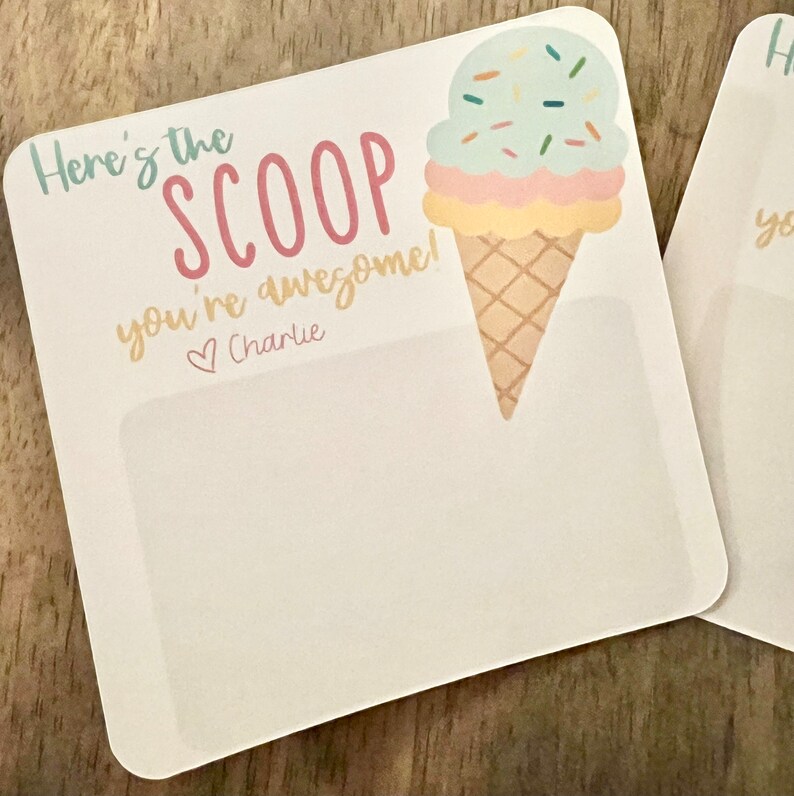 Here's the
SCOOP
you're awesome!
♡ Charlie
H
yo